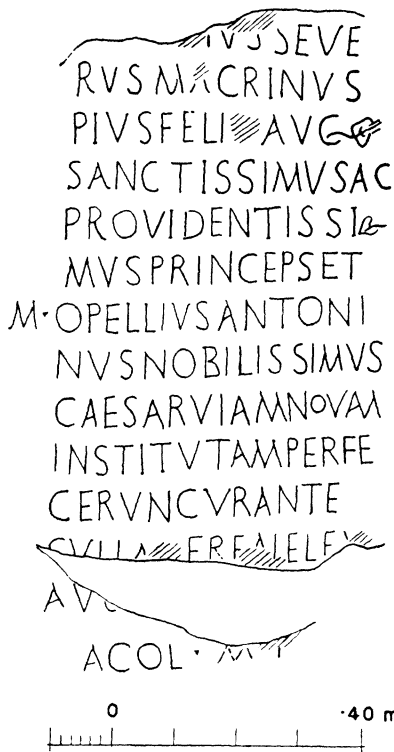 IVSSEVE
RVSMACRINVS
PIVSFELI AVG
SANCTISSIMVSAC
PROVIDENTISSI
MVSPRINCEPSET
M·OPELLIVSANTONI
NVSNOBILISSIMVS
CAESARVIAMNOVAM
INSTITVTAMPERFE
CERVNCVRANTE
AV
ACOL ·
0 ·40 m